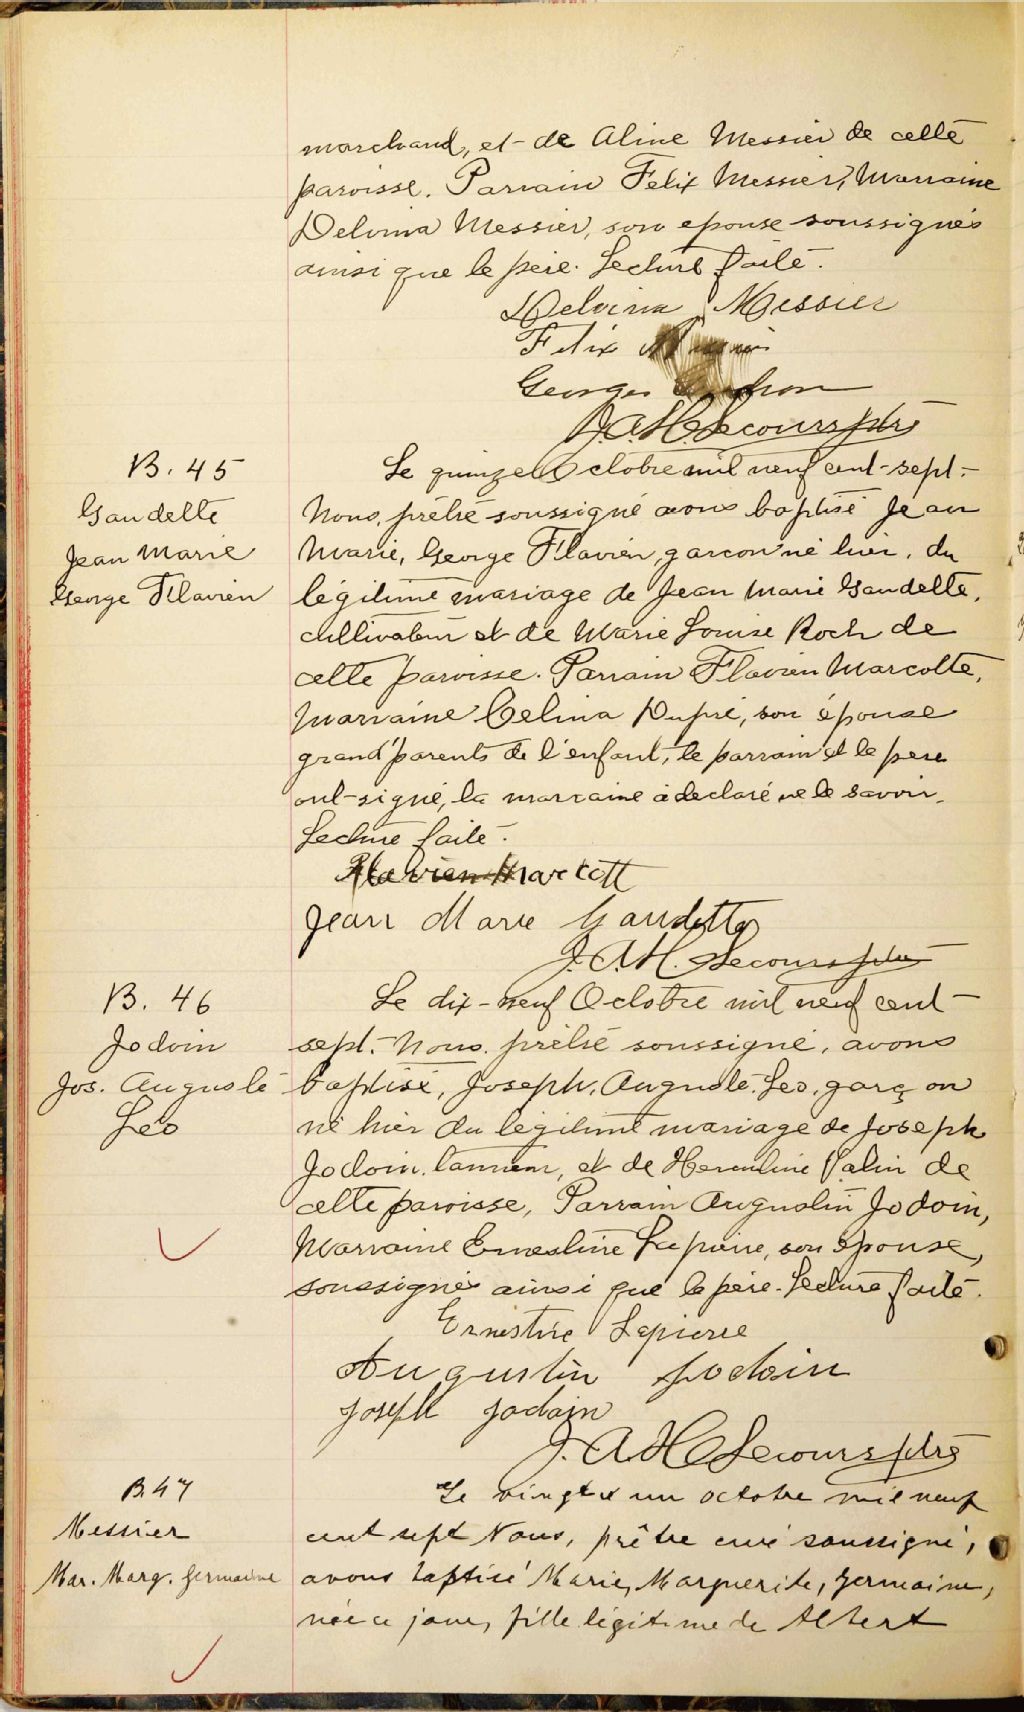 marchand, et de Aline Messier de cette
paroisse. Parrain Felix Messier, Marraine
Delvina Messier, son epouse soussignés
ainsi que le père. Lecture faite.
Delvina Messier
Felix
Georges
J.A.H. Lecours ptre
B. 45
Gaudette
Jean Marie
George Flavien
Le quinze Octobre mil neuf cent-sept.-
Nous, prêtre soussigné avons baptisé Jean
Marie, George Flavien, garçon né hier, du
légitime mariage de Jean Marie Gaudette,
cultivateur et de Marie Louise Roch de
cette paroisse. Parrain Flavien Marcotte,
Marraine Celina Dupré, son épouse
grand'parents de l'enfant, le parrain et le pere
ont-signé, la marraine a declaré ne le savoir.
Lecture faite.
Flavien Marcott
Jean Marie Gaudette
J.A.H. Lecours ptre
B. 46
Jodoin
Jos. Auguste
Léo
Le dix-neuf Octobre mil neuf cent-
sept. Nous, prêtre soussigné, avons
baptisé, Joseph, Auguste, Leo, garçon
né hier du légitime mariage de Joseph
Jodoin, tanneur, et de Hermeline Valin de
cette paroisse, Parrain Augustin Jodoin,
Marraine Ernestine Lapierre, son épouse,
soussignés ainsi que le père. Lecture faite.
Ernestine Lapierre
Augustin Jodoin
Joseph Jodoin
J.A.H Lecours ptre
B. 47
Messier
Mar. Marg. Germaine
Le vingt et un octobre mil neuf
cent sept Nous, prêtre curé soussigné,
avons baptisé Marie, Marguerite, Germaine,
née ce jour, fille légitime de Albert